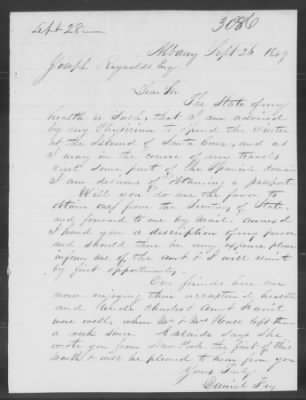 Sept 28
3056
Albany Sept 26 1849
Joseph Reynolds Esq
Dear Sir
The State of my
health is such, that I am advised
by my Physician to spend the winter
at the Island of Santa Cruz, and as
I may in the course of my travels
visit some part of the Spanish domin
I am desirous of obtaining a passport
Will you do me the favor to
obtain one from the Secretary of State
and forward to me by mail. annexed
I hand you a description of my person
and should there be any expense please
inform me of the amt & I will remit
by first opportunity.
Our friends here are
now enjoying their accustomed health
and Uncle Charles & Aunt
were well, when Mr & Mrs Hall left them
a week since. Adelaide says she
wrote you from New York the first of this
month & will be pleased to hear from you
Yours Truly
Daniel Fry